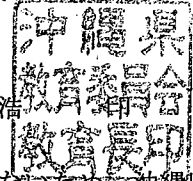 沖縄県
教育委員会
教育長印
浩 印